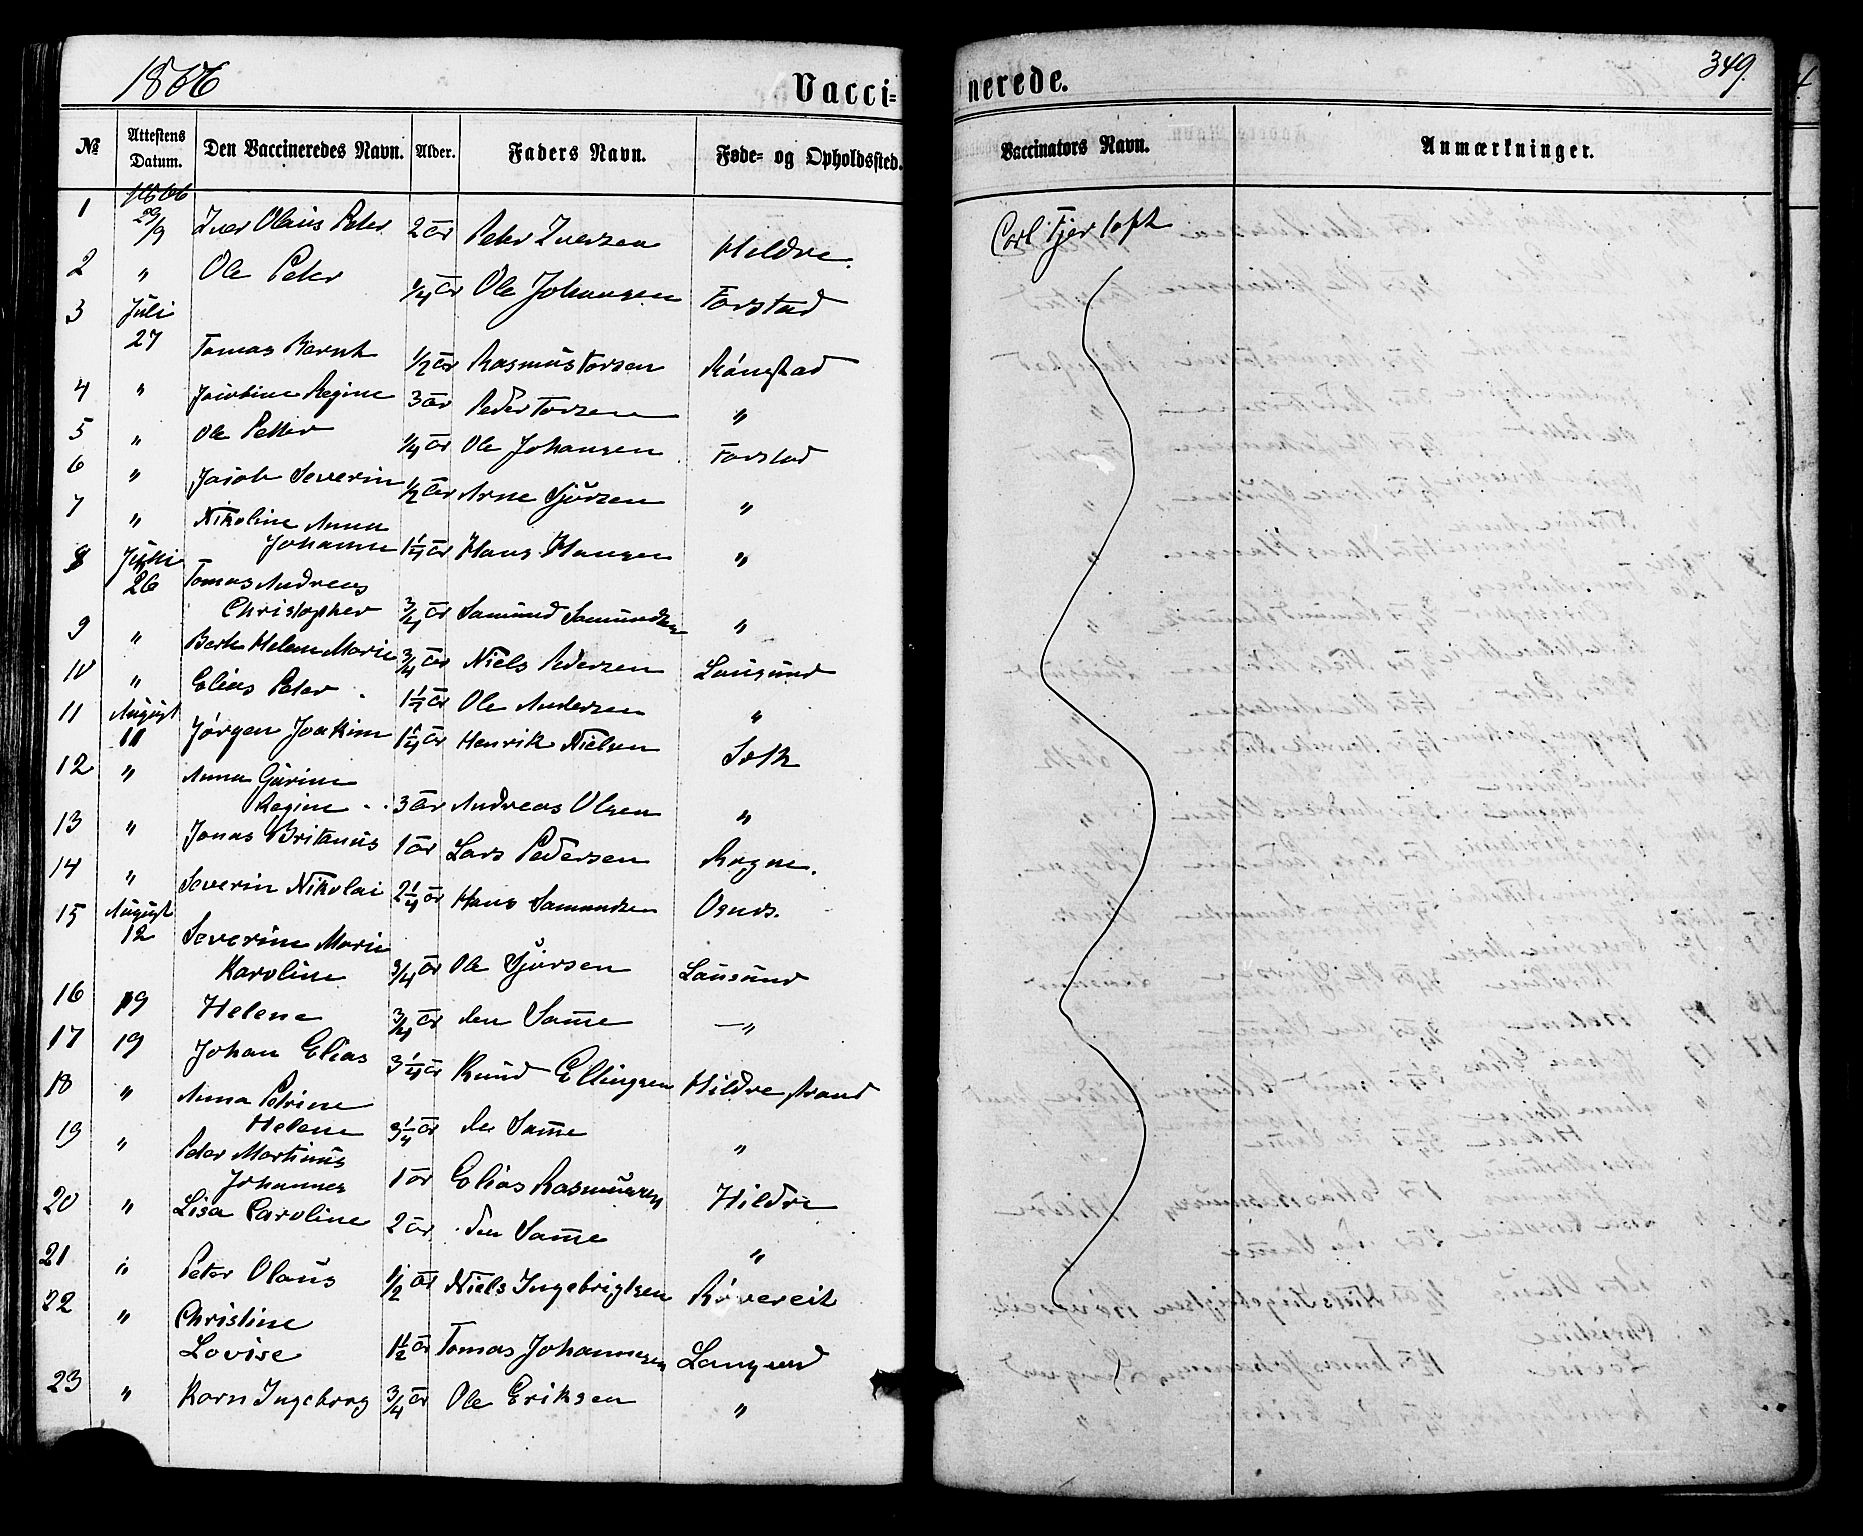 1866
Vacci= nerede.
349.
№ Attestens Datum. Den Vaccineredes Navn. Alder. Faders Navn. Føde- og Opholdssted. Vaccinators Navn. Anmærkninger.
1866
1 29/9 Iver Olaus Peter 2 år Peter Iversen Hildre. Carl Fjertoft
2 " Ole Peter 1/4 år Ole Johansen Farstad
3 Juli 27 Tomas Bernt 1/2 år Rasmus Torsen Rónstad
4 " Jacobine Regine 3 år Peder Torsen "
5 " Ole Petter 1/4 år Ole Johansen Farstad
6 " Jacob Severin 1/2 år Arne Sjørsen "
7 " Nikoline Anna
Johanne 1 1/4 år Hans Hansen "
8 26 Tomas Andreas
Christopher 3/4 år Samund Samundsen "
9 " Berte Helene Marie 3/4 år Niels Pedersen Lausund
10 " Elias Peter 1 1/2 år Ole Andersen "
11 August 11 Jørgen Joakim 1 1/4 år Henrik Nielsen
12 " Anna Gurine
Regine 3 år Andreas Olsen "
13 " Jonas Britanus 1 år Lars Pedersen Rogne.
14 " Severin Nikolai 2 1/4 år Hans Samundsen
15 August 12 Severine Marie
Karoline 3/4 år Ole Sjørsen Lausund
16 19 Helene 3/4 år den Same — "
17 19 Johan Elias 3 1/4 år Knud Ellingsen Hildrestrand
18 " Anna Petrine
Helene 3 1/4 år den Same "
19 " Peter Martinus
Johannes 1 år Elias Rasmussen Hildre
20 " Lisa Caroline 2 år den Same "
21 " Peter Olaus 1/2 år Niels Ingebrigtsen Rövereit
22 " Christine
Lovise 1 1/2 år Tomas Johannesen Langsund
23 " Karn Ingeborg 3/4 år Ole Eriksen "